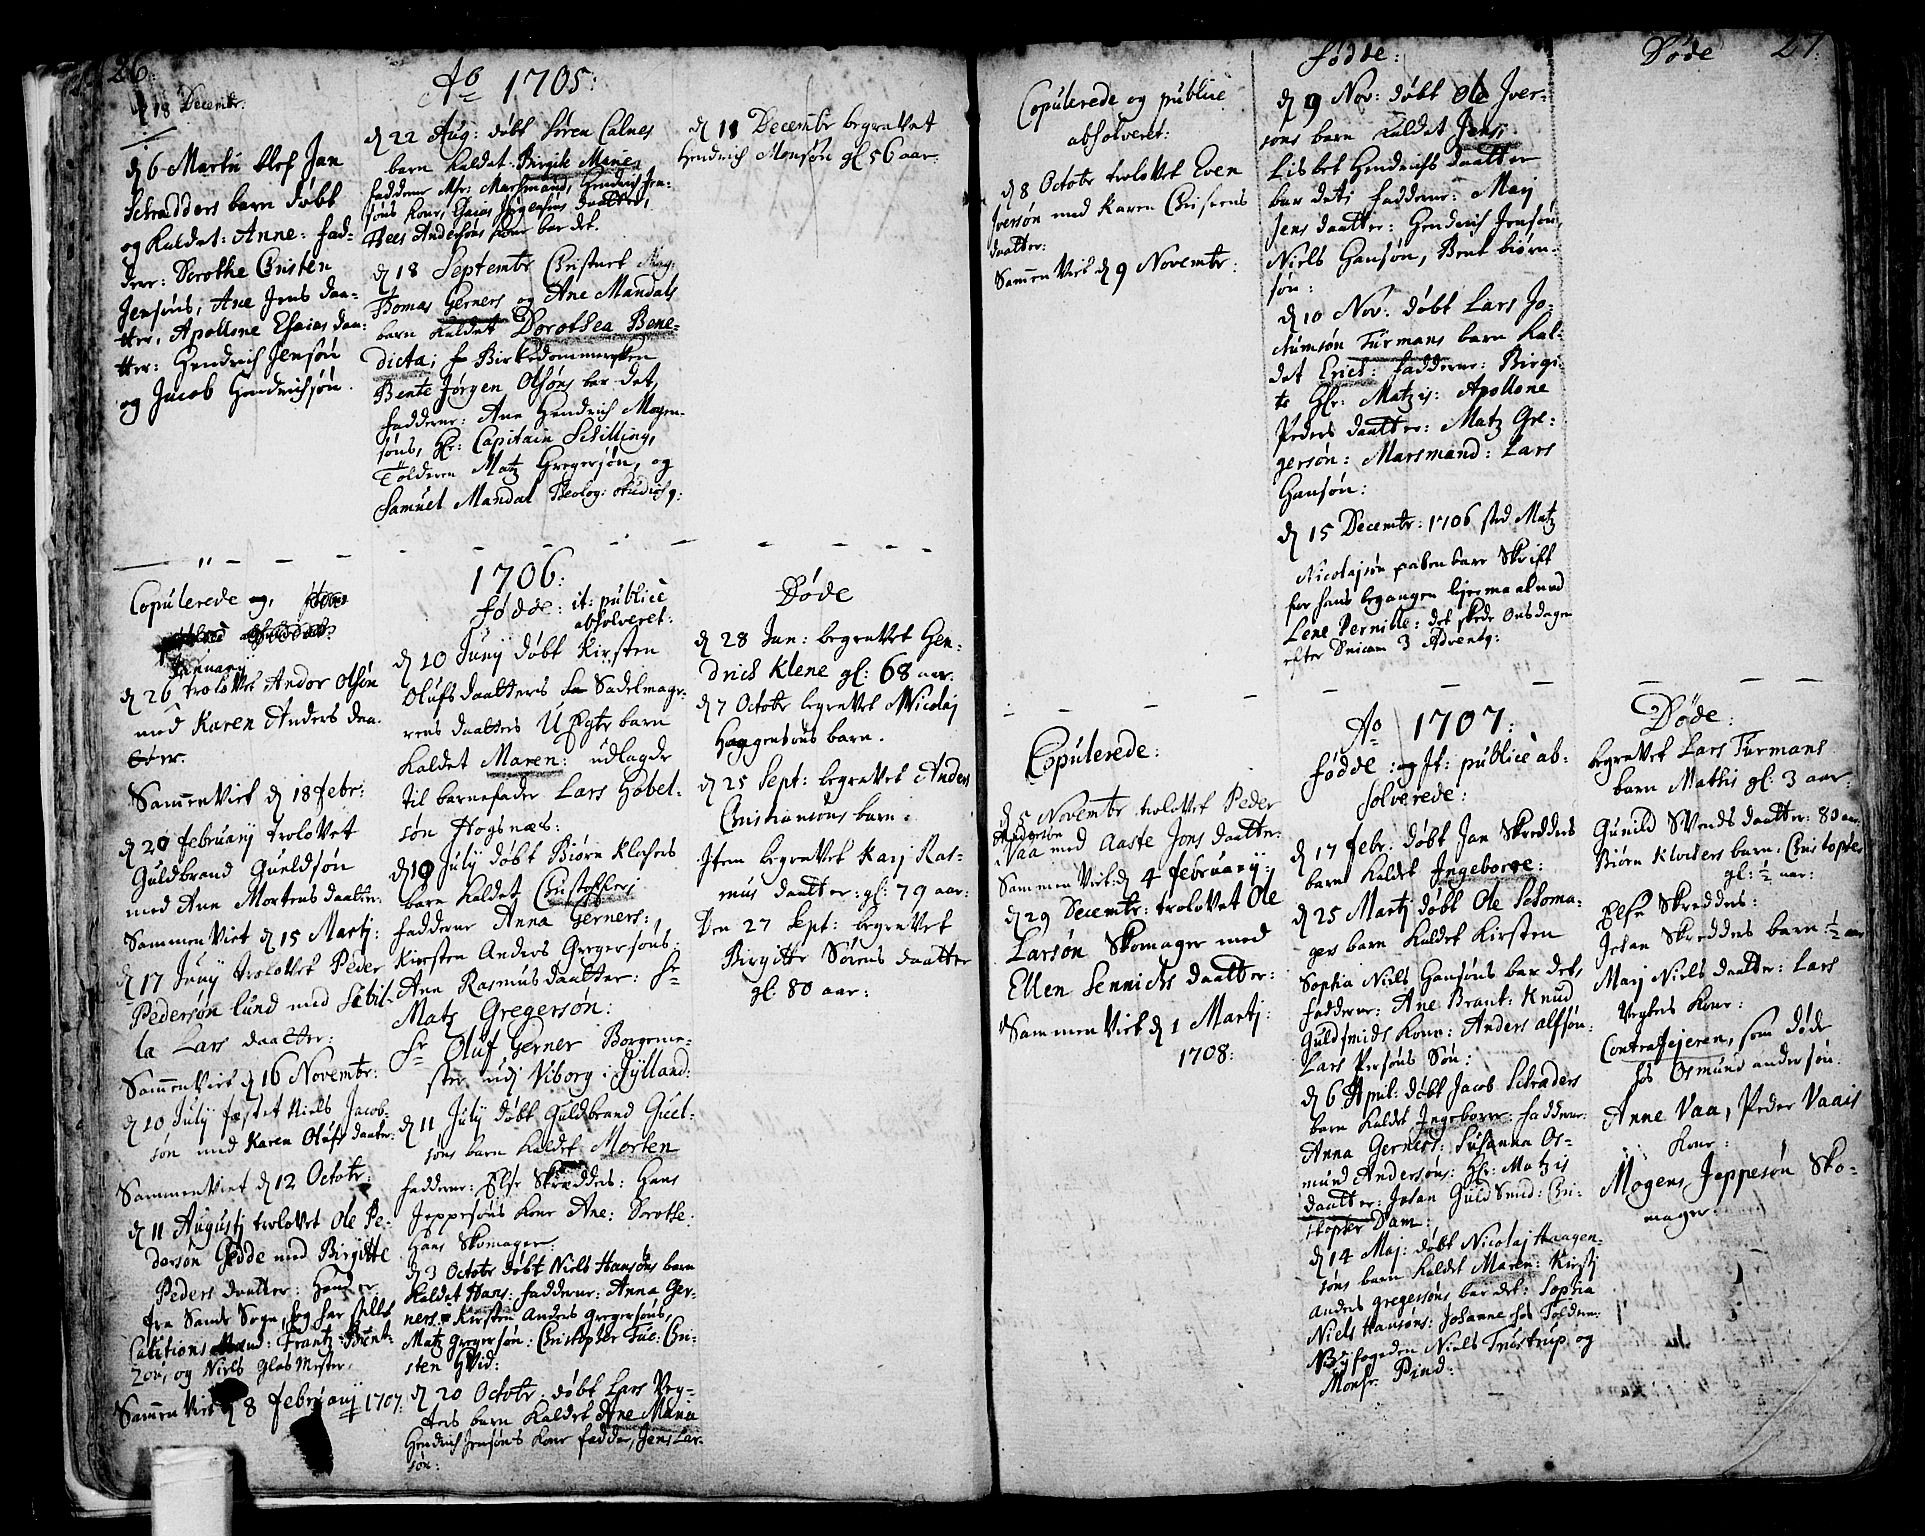 26.
Ao 1705:
d 18 Decembr.
d 6 Martii blef Jan
Schrædders barn døbt
og kaldet: Anne: fad-
dere: Dorothe Christen
Jensøns, Ane Jens daa-
tter, Apollone Esaias daa-
tter: Hendrich Jensøn
og Jacob Hendrichsøn.
d 22 Aug: døbt Søren Calnes
barn kaldet Birgite Marie,
faddere Mfr: Marsmand, Hendrich Jen-
søns kone, Jørgensøns daatter,
Andersøns kone bar det.
d 18 Septembr Christnet Mag.
Thomas Gerners og Ane Mandals
barn kaldet Dorothea Bene-
dicta; Birkedommerschen
Bente Jørgen Olsøns bar det,
faddere: Ane Hendrich Mogen-
søns, Hr: Capitain Schilling,
Tolderen Matz Gregersøn, og
Samuel Mandal Theolog: studios9:
d 11 Decembr begravet
Hendrich Monsøn gl 56 aar.
1706:
Copulerede og,
January
d 26 trolovet Andor Olsøn
med Karen Anders daa-
tter.
Sammen Viet d 18 febr:
d 20 february trolovet
Guldbrand Gueldsøn
med Ane Mortens daatter.
Sammen Viet d 15 Martj:
d 17 Juny trolovet Peder
Pedersøn lund med Sæbil-
la Lars daatter:
Sammen Viet d 16 Novembr:
d 10 July fæstet Niels Jacob-
søn med Karen Olufs daater:
Sammen Viet d 12 Octobr:
d 11 Augustj trolovet Ole Pe-
dersøn Gedde med Birgitte
Peders daatter: Hand er
fra Sande Sogn, og har stillet
Cautions Mænd: Frantz Bent-
zon, og Niels Glas Mester.
Sammen Viet d 8 february 1707.
fødde: it: publicè
absolveret:
d 10 Juny døbt Kirsten
Olufs daatters Sadelmage-
rens daatters U Egte barn
kaldet Maren: udlagde
til barnefader Lars Hobel-
søn Hogsnæs:
d 10 July døbt Biørn Klochers
barn kaldet Christopher:
faddere Anna Gerners:
Kirsten Anders Gregersøns:
Ane Rasmus daatter: Sr
Matz Gregersøn:
Sr Oluf Gerner Borgeme-
ster udj Viborg i Jylland:
d 11 July døbt Guldbrand Guel-
søns barn kaldet Morten
faddere: Else Skrædders: Hans
Jeppesøns kone Ane: Dorothe:
Hans Skomager:
d 3 Octobr døbt Niels Hansøns barn
kaldet Hans: faddere: Anna Ger-
ners: Kirsten Anders Gregersøns,
Matz Gregersøn: Christopher Tue: Chri-
sten Hvid:
d 20 Octobr: døbt Lars Veg-
ters barn kaldet Ane Maria
Hendrich Jensøns kone fadder, Jens Lar-
søn:
Døde
d 28 Jan: begravet Hen-
drich Klene gl: 68 aar.
d 7 Octobr begravet Nicolaj
Haagensøns barn.
d 25 Sept: begravet Anders
Christiansøns barn.
Item begravet Karj Ras-
mus daatter: gl: 79 aar:
Den 27 Sept: begravet
Birgitte Sørens daatter
gl: 80 aar:
27.
Copulerede og publice
absolveret:
d 8 Octobr trolovet Even
Iversøn med Karen Christens
daatter:
Sammen Viet d 9 Novembr:
fødde:
d 9 Nov: døbt Ole Iver-
søns barn kaldet Jens,
Lisbet Hendrichs daatter
bar det: faddere: Marj
Jens daatter: Hendrich Jensøn,
Niels Hansøn, Bent biørn-
søn:
d 10 Nov: døbt Lars Jo-
chumsøn Turmans barn kal-
det Erich: faddere: Birgi-
te Hr: Matzis: Apollone
Peders daatter: Matz Gre-
gersøn: Marsmand: Lars
Hansøn:
d 15 Decembr: 1706 stod Matz
Nicolajsøn aabenbare Skrift
for hans begangen leyermaal med
Lene Pernille: det skede Onsdagen
efter Dnicam 3 Adventg:
Døde
Copulerede:
d 5 Novembr trolovet Peder
Andersøn
i Vaa med Aaste Jons daatter:
Sammen Viet: d 4 february:
d 29 Decembr: trolovet Ole
Larsøn Skomager med
Ellen Lennichs daatter:
Sammen Viet d 1 Martj:
1708:
Ao 1707:
fødde: og It: publicè ab-
solverede:
d 17 febr: døbt Jan Skredders
barn kaldet Ingeborre:
d 25 Martj døbt Ole Schoma-
gers barn kaldet Kirsten
Sophia Niels Hansøns bar det,
faddere: Ane Brant: Knud
Guldsmids kone: Anders Alfsøn:
Lars Persøns Søn:
d 6 April: døbt Jacob Schraders
barn kaldet Ingeborre: faddere:
Anna Gerners: Susanna Os-
mund Andersøns: Hr: Matzis
daatter: Johan Guld Smid: Chri-
stopher Dam:
d 14 Maj: døbt Nicolaj Haagen-
søns barn kaldet Maren: Kirsti
anders gregersøns bar det: Sophia
Niels Hansøns: Johanne hos Tolderen:
Byfogeden Niels Trustrup og
Monsr. Pind:
Døde:
begravet Lars Turmans
barn Mathis gl: 3 aar:
Gunild Svends daatter: 80 aar.
Biørn Klockers barn: Christopher
gl: ½ aar:
Else Skredders:
Johan Skredders barn ½ aar
Marj Niels daatter: Lars
Vegters kone:
Contrafejeren, som døde
hos Osmund andersøn.
Anne Vaa, Peder Vaais
kone:
Mogens Jeppesøn Sko-
mager: